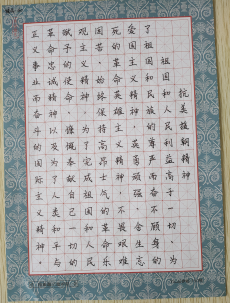 抗美援朝精神
祖国和人民利益高于一切、为
了祖国和民族的尊严而奋不顾身的
爱国主义精神,英勇顽强、舍生忘
死的革命英雄主义精神,不畏艰难
困苦、始终保持高昂士气的革命乐
观主义精神,为完成祖国和人民
赋予的使命、慷慨奉献自己一切的
革命忠诚精神,以及为了人类和平与
正义事业而奋斗的国际主义精神。